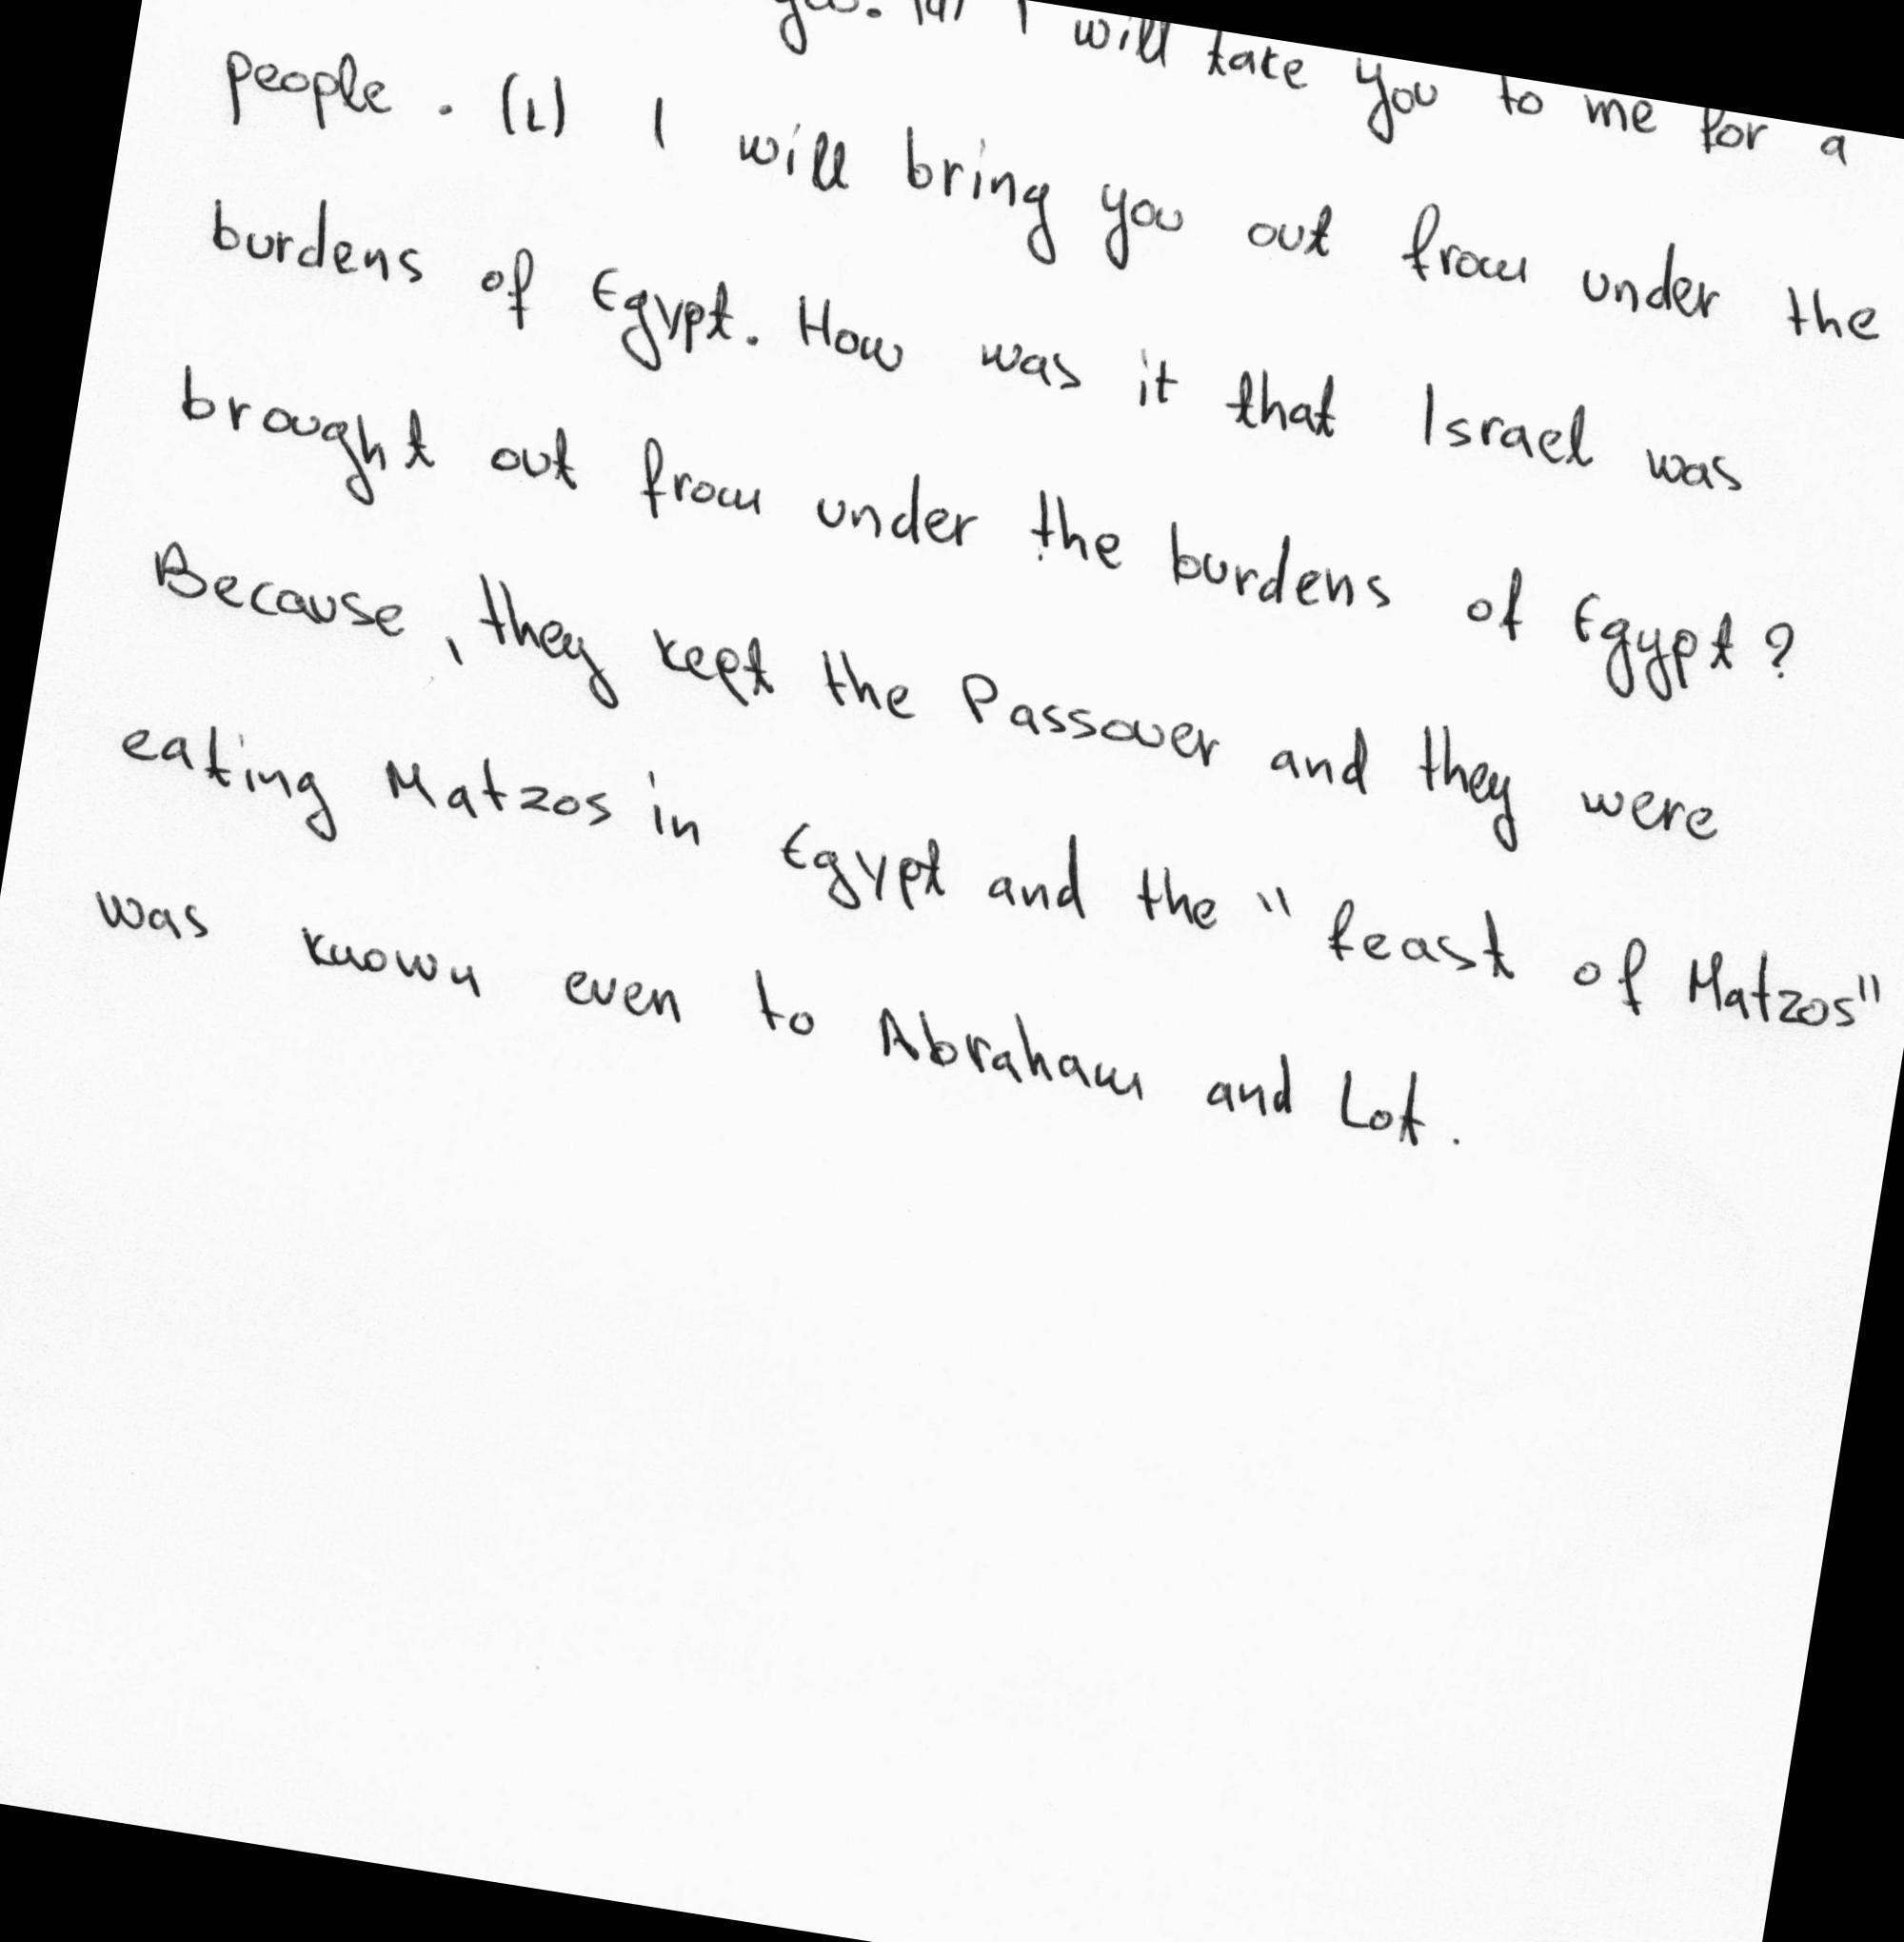 you. (4) I will take you to me for a
people. (1) I will bring you out from under the
burdens of Egypt. How was it that Israel was
brought out from under the burdens of Egypt?
Because, they kept the Passover and they were
eating Matzos in Egypt and the "feast of Matzos"
was known even to Abraham and Lot.